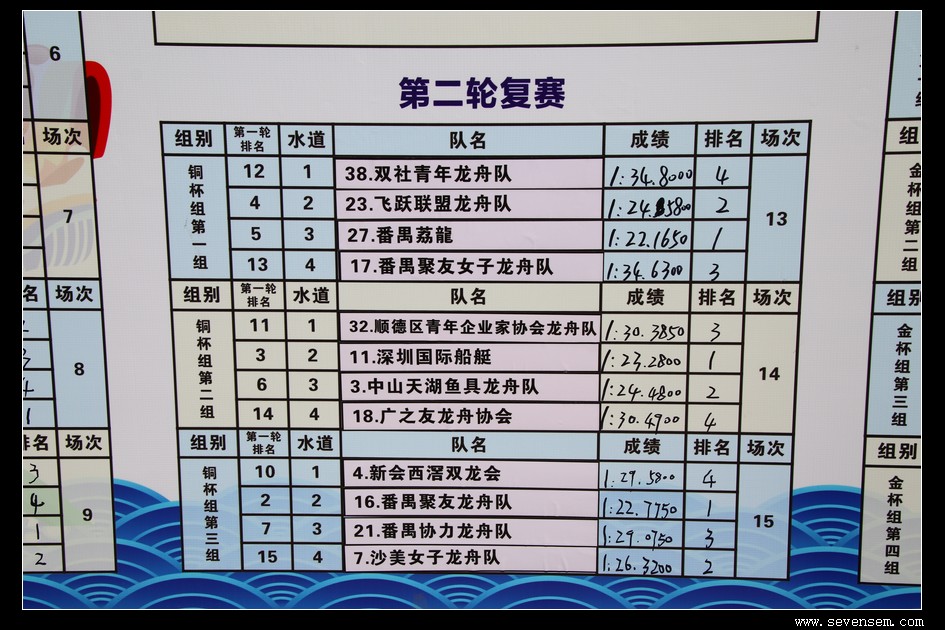 第二轮复赛
组别 第一轮排名 水道 队名 成绩 排名 场次
铜杯组第一组 12 1 38.双社青年龙舟队 1:34.8000 4 13
4 2 23.飞跃联盟龙舟队 1:24.5800 2
5 3 27.番禺荔龍 1:22.1650 1
13 4 17.番禺聚友女子龙舟队 1:34.6300 3
组别 第一轮排名 水道 队名 成绩 排名 场次
铜杯组第二组 11 1 32.顺德区青年企业家协会龙舟队 1:30.3850 3 14
3 2 11.深圳国际船艇 1:23.2800 1
6 3 3.中山天湖鱼具龙舟队 1:24.4800 2
14 4 18.广之友龙舟协会 1:30.4900 4
组别 第一轮排名 水道 队名 成绩 排名 场次
铜杯组第三组 10 1 4.新会西滘双龙会 1:29.5800 4 15
2 2 16.番禺聚友龙舟队 1:22.7750 1
7 3 21.番禺协力龙舟队 1:29.0750 3
15 4 7.沙美女子龙舟队 1:26.3200 2
6
场次
7
名 场次
8
4
1
排名 场次
3 9
4
1
2
组
金杯组第二组
组别
金杯组第三组
组别
金杯组第四组
www.sevensem.com